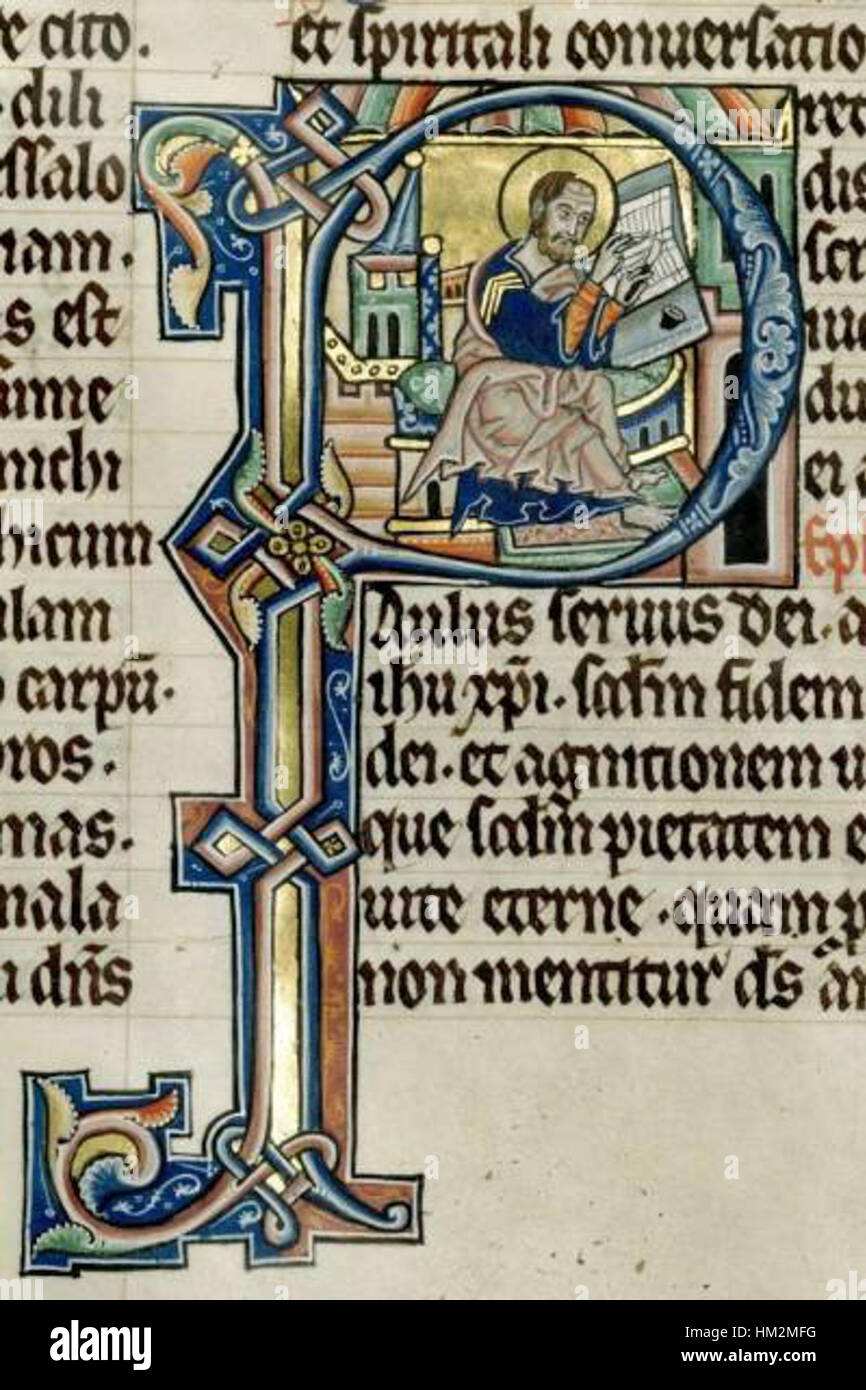 cito.
dili
ssalo
est
sume
michi
hicum
ulam
carpū.
mas.
mala
dn̄s
et spiritali conuersatio
dis
du
ei
Epi
PAulus seruus dei. a
ihu xp̄i. scđm fidem
dei. et agnitionem u
que scđm pietatem e
uite eterne. quam p
non mentitur ds̄
alamy
Image ID: HM2MFG
www.alamy.com